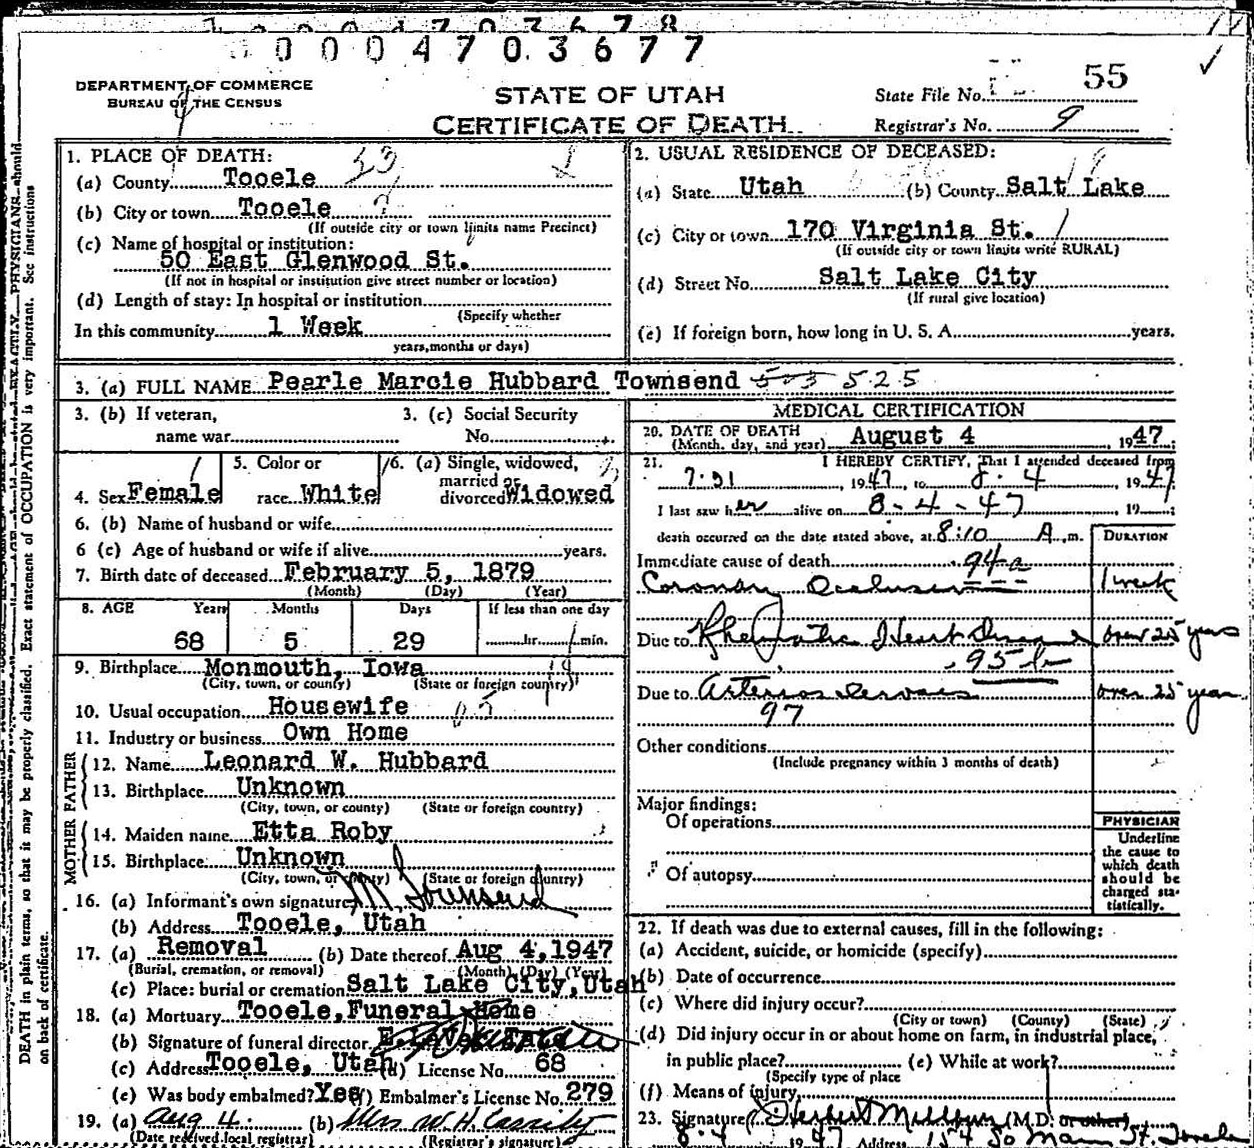 0000470 3678
0000470 3677
DEPARTMENT OF COMMERCE
BUREAU OF THE CENSUS
STATE OF UTAH
CERTIFICATE OF DEATH
State File No. 55
Registrar's No. 9
1. PLACE OF DEATH:
(a) County Tooele
(b) City or town Tooele
(If outside city or town limits name Precinct)
(c) Name of hospital or institution:
50 East Glenwood St.
(If not in hospital or institution give street number or location)
(d) Length of stay: In hospital or institution
(Specify whether
In this community 1 Week
years, months or days)
2. USUAL RESIDENCE OF DECEASED:
(a) State Utah (b) County Salt Lake
(c) City or town 170 Virginia St.
(If outside city or town limits write RURAL)
(d) Street No. Salt Lake City
(If rural give location)
(e) If foreign born, how long in U. S. A. years.
3. (a) FULL NAME Pearle Marcie Hubbard Townsend 525
3. (b) If veteran, 3. (c) Social Security
name war No.
4. Sex Female 5. Color or race White 6. (a) Single, widowed, married or divorced Widowed
6. (b) Name of husband or wife
6 (c) Age of husband or wife if alive years.
7. Birth date of deceased February 5, 1879
(Month) (Day) (Year)
8. AGE Years Months Days If less than one day
68 5 29 hr. min.
9. Birthplace Monmouth, Iowa
(City, town, or county) (State or foreign country)
10. Usual occupation Housewife
11. Industry or business Own Home
FATHER
12. Name Leonard W. Hubbard
13. Birthplace Unknown
(City, town, or county) (State or foreign country)
MOTHER
14. Maiden name Etta Roby
15. Birthplace Unknown
(City, town, or county) (State or foreign country)
16. (a) Informant's own signature M Townsend
(b) Address Tooele, Utah
17. (a) Removal (b) Date thereof Aug 4, 1947
(Burial, cremation, or removal) (Month) (Day) (Year)
(c) Place: burial or cremation Salt Lake City, Utah
18. (a) Mortuary Tooele, Funeral Home
(b) Signature of funeral director
(c) Address Tooele, Utah (d) License No. 68
(e) Was body embalmed? Yes (f) Embalmer's License No. 279
19. (a) Aug 4 (b) Mrs W. H. Cassity
(Date received local registrar) (Registrar's signature)
MEDICAL CERTIFICATION
20. DATE OF DEATH
(Month, day, and year) August 4, 1947;
21. I HEREBY CERTIFY, That I attended deceased from
7:31, 1947, to 8-4, 1947
I last saw her alive on 8-4-47, 19 ;
death occurred on the date stated above, at 8:10 A. m. DURATION
Immediate cause of death 94a
Coronary Occlusion 1 week
Due to Rheumatic Heart Disease over 25 years
95b
Due to over 25 year
97
Other conditions
(Include pregnancy within 3 months of death)
Major findings:
Of operations
Of autopsy
PHYSICIAN
Underline
the cause to
which death
should be
charged sta-
tistically.
22. If death was due to external causes, fill in the following:
(a) Accident, suicide, or homicide (specify)
(b) Date of occurrence
(c) Where did injury occur?
(City or town) (County) (State)
(d) Did injury occur in or about home on farm, in industrial place,
in public place? (e) While at work?
(Specify type of place
(f) Means of injury
23. Signature (M.D. or other)
Address
PHYSICIANS should
Exact statement of OCCUPATION is very important. See instructions
DEATH in plain terms, so that it may be properly classified.
on back of certificate.